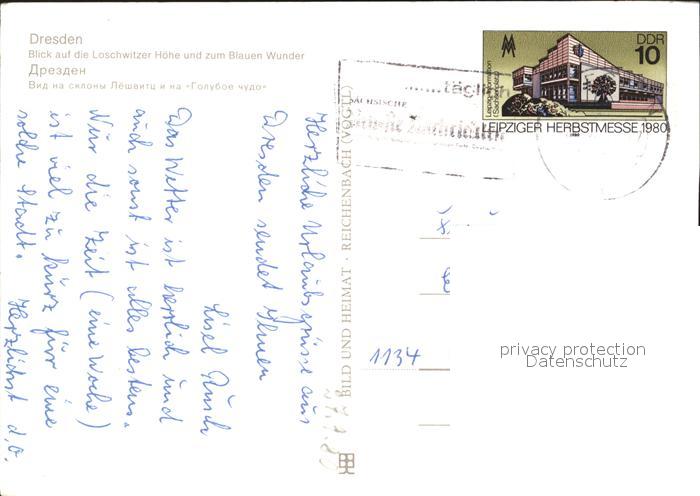 Dresden
Blick auf die Loschwitzer Höhe und zum Blauen Wunder
Дрезден
Вид на склоны Лёшвитц и на «Голубое чудо»
DDR
10
LEIPZIGER HERBSTMESSE 1980
......täglich
SÄCHSISCHE
BILD UND HEIMAT · REICHENBACH (VOGTL)
Herzliche Urlaubsgrüsse aus
Dresden sendet Ihnen
Lisel
Das Wetter ist herrlich und
auch sonst ist alles bestens.
Nur die Zeit (eine Woche)
ist viel zu kurz für eine
solche Stadt. Herzlichst d.O.
1134
privacy protection
Datenschutz